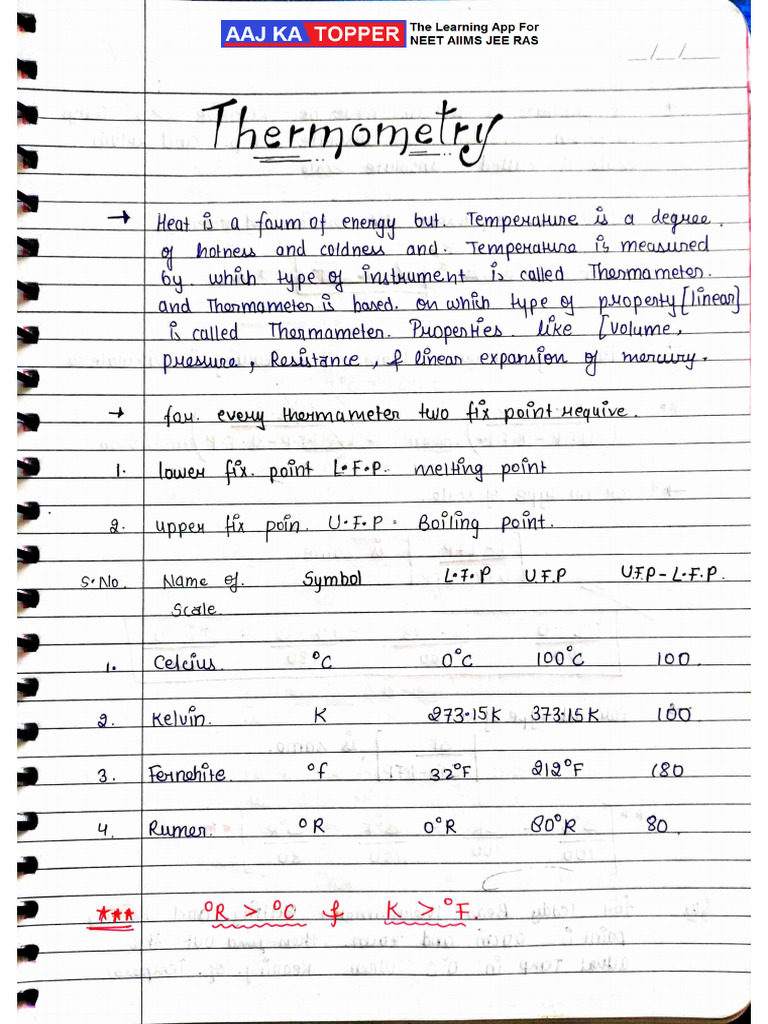 AAJ KA TOPPER The Learning App For
NEET AIIMS JEE RAS
_/_/__
Thermometry
→ Heat is a form of energy but. Temperature is a degree.
of hotness and coldness and. Temperature is measured
by. which type of instrument is called Thermameter.
and Thermameter is based. on which type of property [linear]
is called Thermameter. Properties. like [volume,
pressure, Resistance, & linear expansion of mercury.
→ for. every thermameter two fix point require.
1. lower fix. point L.F.P. melting point
2. upper fix poin. U.F.P = Boiling point.
S.No. Name of. Symbol L.F.P U.F.P U.F.P - L.F.P.
Scale.
1. Celcius. °C 0°C 100°C 100.
2. Kelvin. K 273.15K 373.15K 100
3. Fernehite. °f 32°F 212°F 180
4. Rumer. °R 0°R 80°R 80.
*** °R > °C & K > °F.